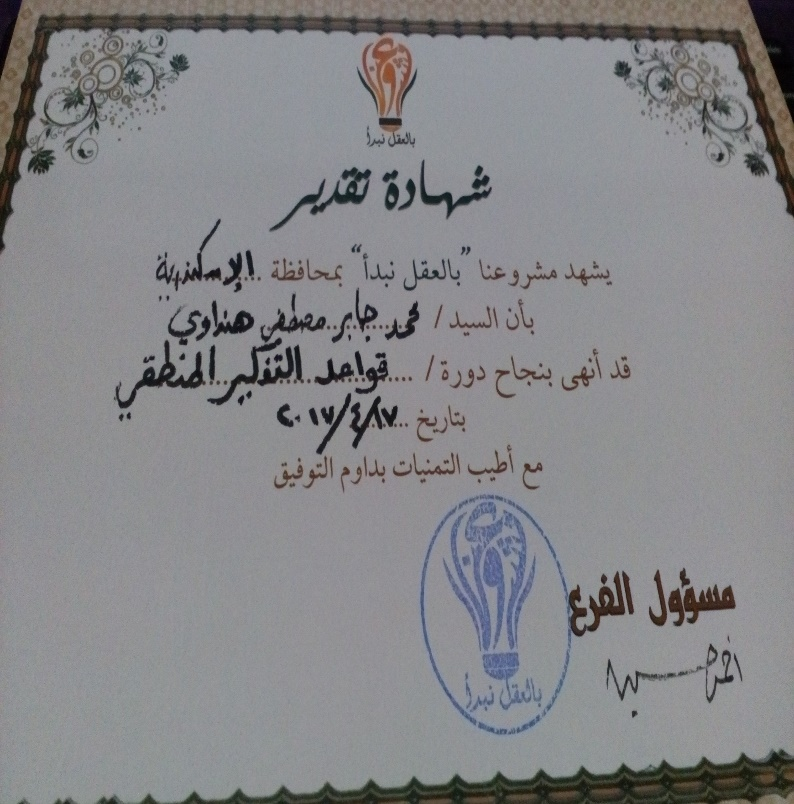 بالعقل نبدأ
شهادة تقدير
يشهد مشروعنا "بالعقل نبدأ" بمحافظة .... الإسكندرية
بأن السيد / محمد جابر مصطفى هنداوي
قد أنهى بنجاح دورة / .... قواعد التفكير المنطقي
بتاريخ .... ٢٠١٧/٤/١٧
مع أطيب التمنيات بداوم التوفيق
مسؤول الفرع
بالعقل نبدأ